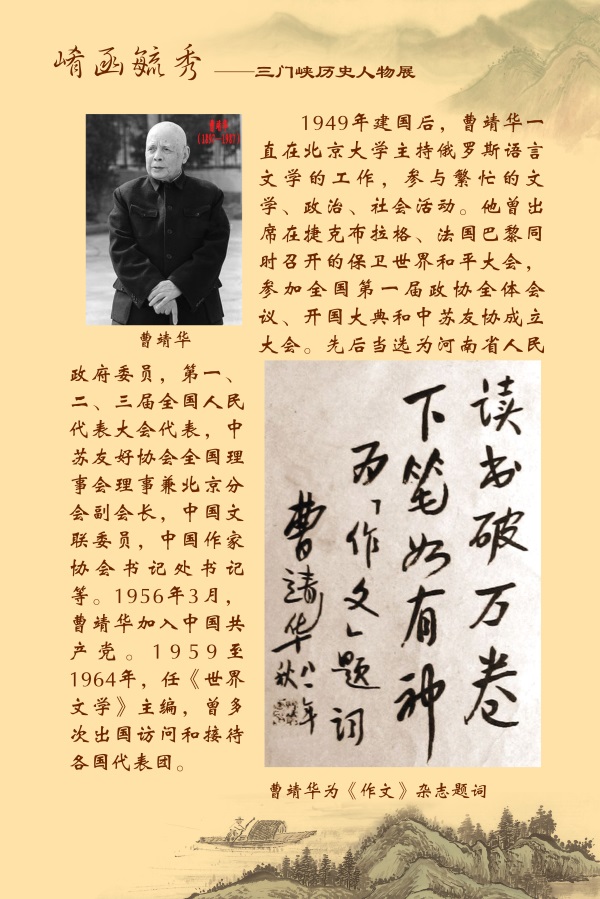 崤函毓秀 ——三门峡历史人物展
曹靖华
(1897-1987)
曹靖华
1949年建国后，曹靖华一
直在北京大学主持俄罗斯语言
文学的工作，参与繁忙的文
学、政治、社会活动。他曾出
席在捷克布拉格、法国巴黎同
时召开的保卫世界和平大会，
参加全国第一届政协全体会
议、开国大典和中苏友协成立
大会。先后当选为河南省人民
政府委员，第一、
二、三届全国人民
代表大会代表，中
苏友好协会全国理
事会理事兼北京分
会副会长，中国文
联委员，中国作家
协会书记处书记
等。1956年3月，
曹靖华加入中国共
产党。1959至
1964年，任《世界
文学》主编，曾多
次出国访问和接待
各国代表团。
读书破万卷
下笔如有神
为「作文」题词
曹靖华
八一年秋
曹靖华为《作文》杂志题词